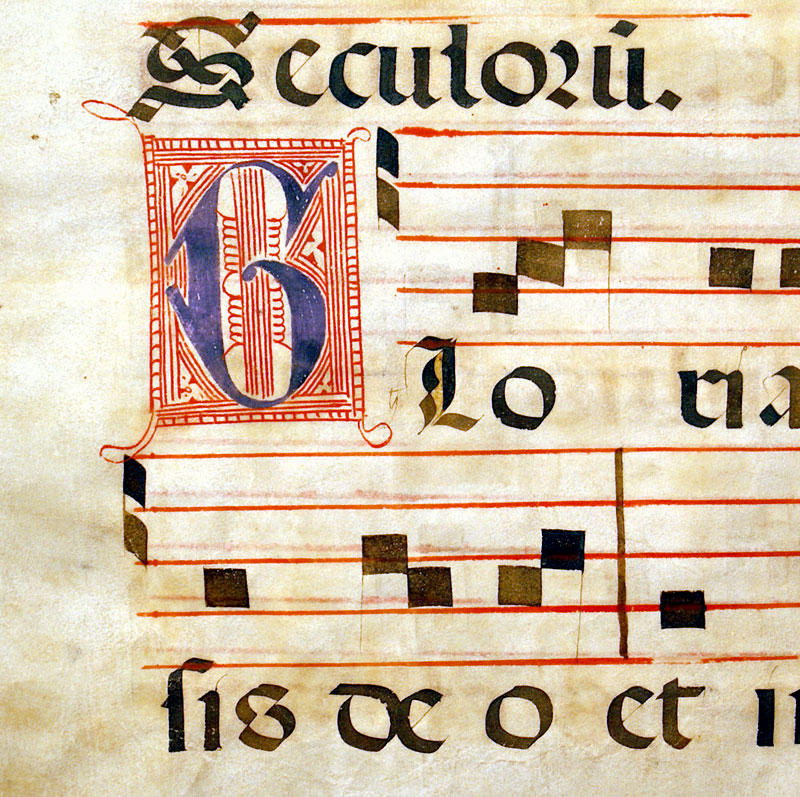 Seculorū.
GLo ria
sis de o et in